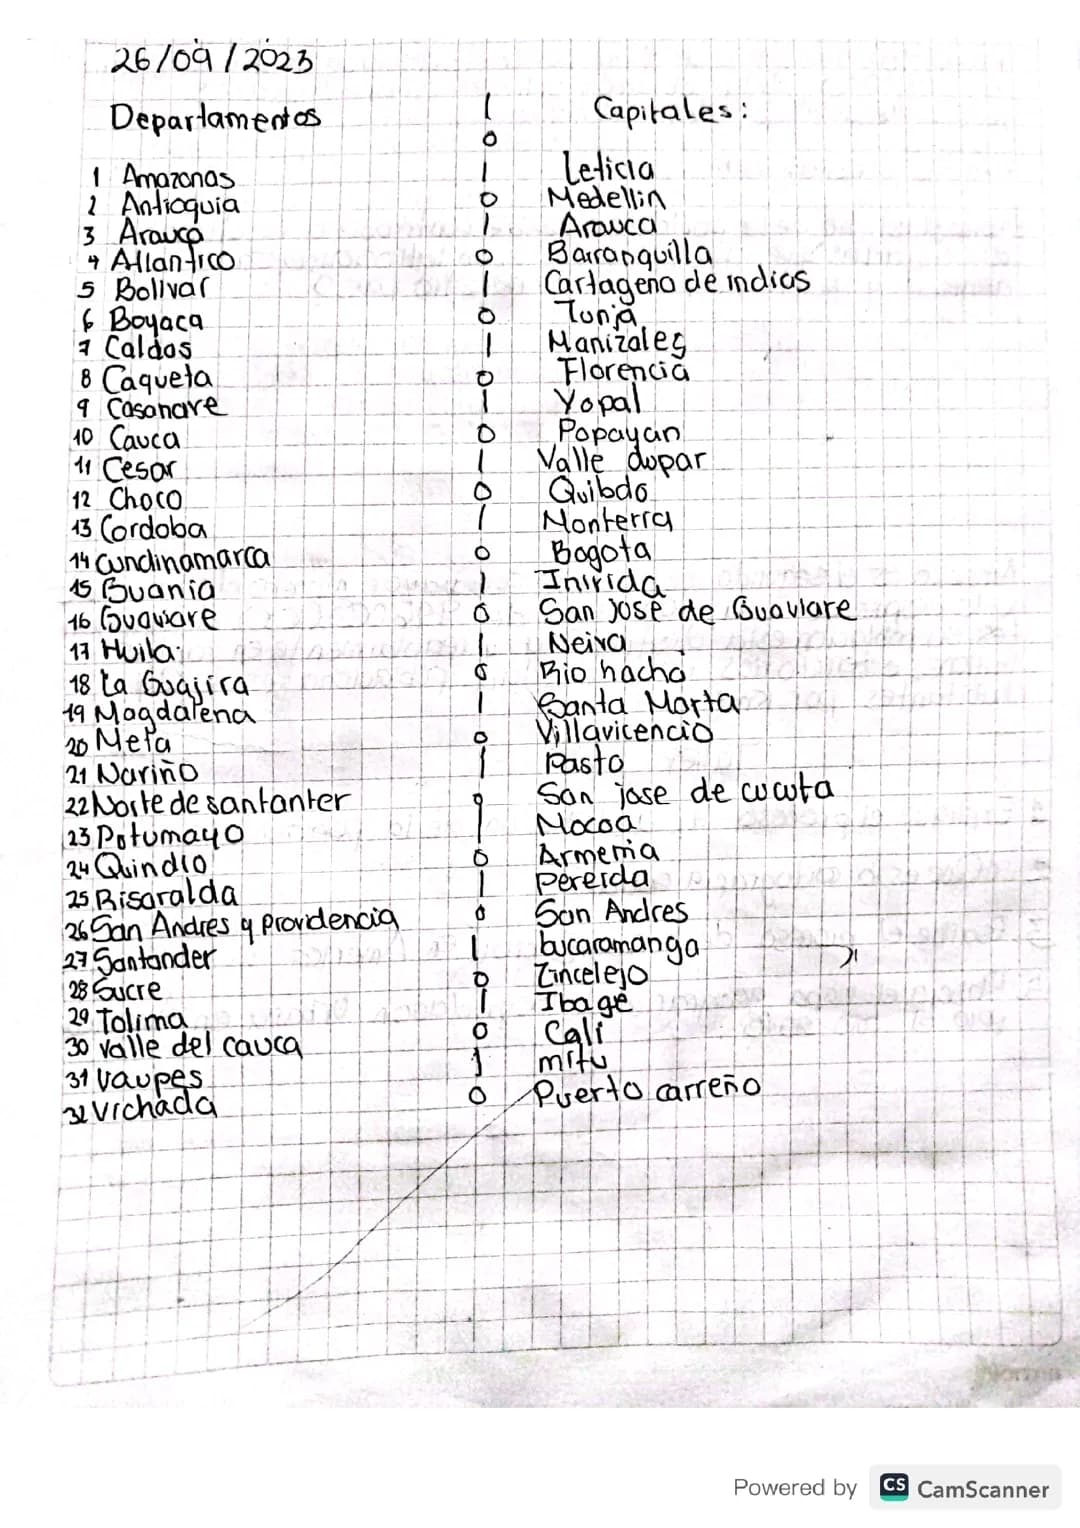 26/09/2023
Departamentos Capitales:
1 Amazonas Leticia
2 Antioquia Medellin
3 Arauca Arauca
4 Atlantico Barranquilla
5 Bolivar Cartagena de indias
6 Boyaca Tunja
7 Caldas Manizales
8 Caqueta Florencia
9 Casanare Yopal
10 Cauca Popayan
11 Cesar Valle dupar
12 Choco Quibdo
13 Cordoba Monterra
14 cundinamarca Bogota
15 Guania Inirida
16 Guaviare San jose de Guaviare
17 Huila Neiva
18 La Guajira Rio hacha
19 Magdalena Santa Marta
20 Meta Villavicencio
21 Nariño Pasto
22 Norte de santanter San jose de cucuta
23 Potumayo Mocoa
24 Quindio Armenia
25 Risaralda Pereida
26 San Andres y providencia San Andres
27 Santander bucaramanga
28 Sucre Zincelejo
29 Tolima Ibage
30 valle del cauca Cali
31 vaupes mitu
32 vichada Puerto carreño
Norma
Powered by CS CamScanner